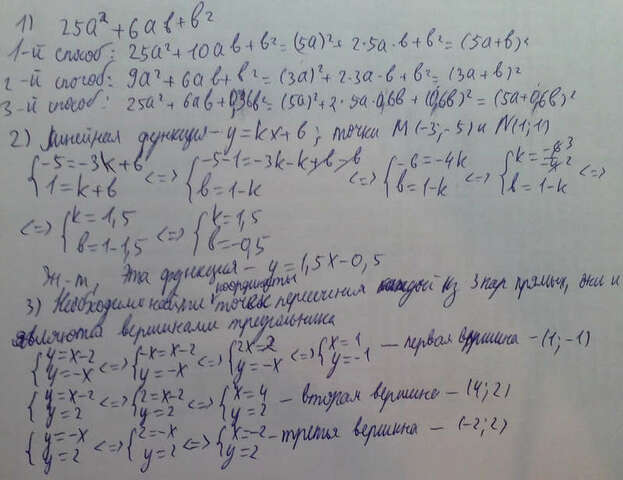 1) 25a²+6ab+b²
1-й способ: 25a²+10ab+b²=(5a)²+2·5a·b+b²=(5a+b)²
2-й способ: 9a²+6ab+b²=(3a)²+2·3a·b+b²=(3a+b)²
3-й способ: 25a²+6ab+0,36b²=(5a)²+2·5a·0,6b+(0,6b)²=(5a+0,6b)²
2) Линейная функция - y=kx+b; точки M(-3;-5) и N(1;1)
{-5=-3k+b <=> {-5-1=-3k-k+b-b <=> {-6=-4k <=> {k=-6/-4 3/2 <=>
{1=k+b {b=1-k {b=1-k {b=1-k
<=> {k=1,5 <=> {k=1,5
{b=1-1,5 {b=-0,5
Эта функция - y=1,5x-0,5
3) Необходимо найти координаты точек пересечения каждой из 3 пар прямых, они и
являются вершинами треугольника
{y=x-2 <=> {-x=x-2 <=> {2x=2 <=> {x=1 - первая вершина - (1;-1)
{y=-x {y=-x {y=-x {y=-1
{y=x-2 <=> {2=x-2 <=> {x=4 - вторая вершина - (4;2)
{y=2 {y=2 {y=2
{y=-x <=> {2=-x <=> {x=-2 - третья вершина - (-2;2)
{y=2 {y=2 {y=2